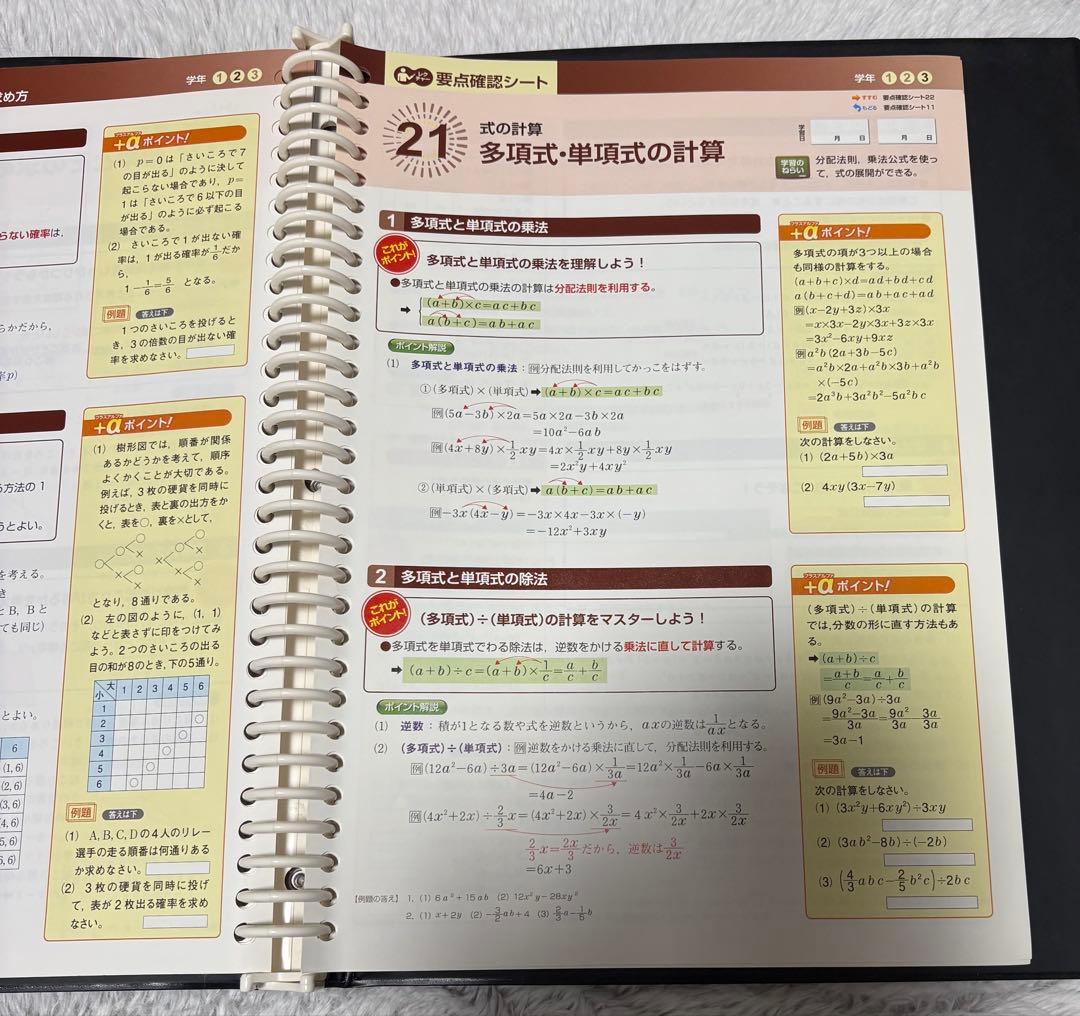 求め方
学年 1 2 3
らない確率は,
らかだから,
率p)
る方法の1
うとよい。
を考える。
き
とB, Bと
ても同じ)
とよい。
6
(1, 6)
(2, 6)
(3, 6)
(4, 6)
(5, 6)
(6, 6)
プラスアルファ
+αポイント!
(1) p=0は「さいころで7
の目が出る」のように決して
起こらない場合であり, p=
1は「さいころで6以下の目
が出る」のように必ず起こる
場合である。
(2) さいころで1が出ない確
率は, 1が出る確率が1/6だか
ら,
1-1/6=5/6 となる。
例題 答えは下
1つのさいころを投げると
き, 3の倍数の目が出ない確
率を求めなさい。
プラスアルファ
+αポイント!
(1) 樹形図では, 順番が関係
あるかどうかを考えて, 順序
よくかくことが大切である。
例えば, 3枚の硬貨を同時に
投げるとき, 表と裏の出方をか
くと, 表を○, 裏を×として,
となり, 8通りである。
(2) 左の図のように, (1, 1)
などと表さずに印をつけてみ
よう。2つのさいころの出る
目の和が8のとき, 下の5通り。
大
小 1 2 3 4 5 6
1
2 ○
3 ○
4 ○
5 ○
6 ○
例題 答えは下
(1) A, B, C, Dの4人のリレー
選手の走る順番は何通りある
か求めなさい。
(2) 3枚の硬貨を同時に投げ
て, 表が2枚出る確率を求め
なさい。
レクチャー 要点確認シート
学年 1 2 3
すすむ 要点確認シート22
もどる 要点確認シート11
21
式の計算
多項式・単項式の計算
学習日 月 日 月 日
学習のねらい 分配法則, 乗法公式を使っ
て, 式の展開ができる。
1 多項式と単項式の乗法
これがポイント! 多項式と単項式の乗法を理解しよう!
●多項式と単項式の乗法の計算は分配法則を利用する。
➡ (a+b)×c=ac+bc
a(b+c)=ab+ac
ポイント解説
(1) 多項式と単項式の乗法:例分配法則を利用してかっこをはずす。
①(多項式)×(単項式)➡(a+b)×c=ac+bc
例(5a-3b)×2a=5a×2a-3b×2a
=10a²-6ab
例(4x+8y)×1/2xy=4x×1/2xy+8y×1/2xy
=2x²y+4xy²
②(単項式)×(多項式)➡a(b+c)=ab+ac
例-3x(4x-y)=-3x×4x-3x×(-y)
=-12x²+3xy
プラスアルファ
+αポイント!
多項式の項が3つ以上の場合
も同様の計算をする。
(a+b+c)×d=ad+bd+cd
a(b+c+d)=ab+ac+ad
例(x-2y+3z)×3x
=x×3x-2y×3x+3z×3x
=3x²-6xy+9xz
例a²b(2a+3b-5c)
=a²b×2a+a²b×3b+a²b
×(-5c)
=2a³b+3a²b²-5a²bc
例題 答えは下
次の計算をしなさい。
(1) (2a+5b)×3a
(2) 4xy(3x-7y)
2 多項式と単項式の除法
これがポイント! (多項式)÷(単項式)の計算をマスターしよう!
●多項式を単項式でわる除法は, 逆数をかける乗法に直して計算する。
➡(a+b)÷c=(a+b)×1/c=a/c+b/c
ポイント解説
(1) 逆数:積が1となる数や式を逆数というから, axの逆数は1/axとなる。
(2) (多項式)÷(単項式):例逆数をかける乗法に直して, 分配法則を利用する。
例(12a²-6a)÷3a=(12a²-6a)×1/3a=12a²×1/3a-6a×1/3a
=4a-2
例(4x²+2x)÷2/3x=(4x²+2x)×3/2x=4x²×3/2x+2x×3/2x
2/3x=2x/3だから, 逆数は3/2x
=6x+3
プラスアルファ
+αポイント!
(多項式)÷(単項式)の計算
では, 分数の形に直す方法もあ
る。
➡(a+b)÷c
=a+b/c=a/c+b/c
例(9a²-3a)÷3a
=9a²-3a/3a=9a²/3a-3a/3a
=3a-1
例題 答えは下
次の計算をしなさい。
(1) (3x²y+6xy²)÷3xy
(2) (3ab²-8b)÷(-2b)
(3) (4/3abc-2/5b²c)÷2bc
【例題の答え】 1. (1) 6a²+15ab (2) 12x²y-28xy²
2. (1) x+2y (2) -3/2ab+4 (3) 2/3a-1/5b